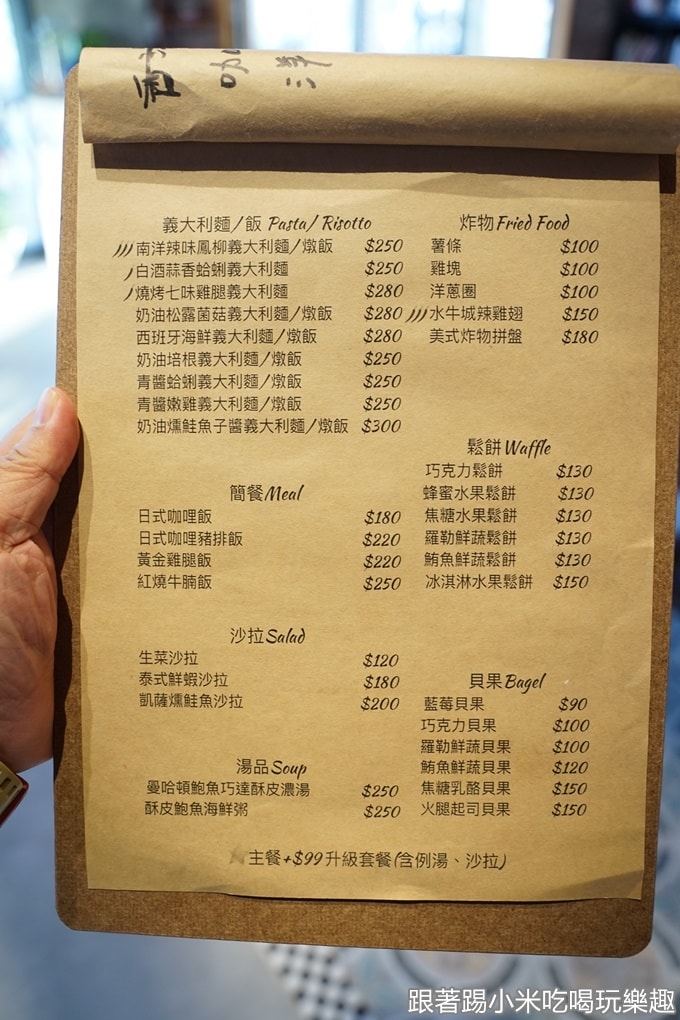 咖 洋
義大利麵/飯 Pasta/ Risotto
南洋辣味鳳柳義大利麵/燉飯 $250
白酒蒜香蛤蜊義大利麵 $250
燒烤七味雞腿義大利麵 $280
奶油松露菌菇義大利麵/燉飯 $280
西班牙海鮮義大利麵/燉飯 $280
奶油培根義大利麵/燉飯 $250
青醬蛤蜊義大利麵/燉飯 $250
青醬嫩雞義大利麵/燉飯 $250
奶油燻鮭魚子醬義大利麵/燉飯 $300
簡餐Meal
日式咖哩飯 $180
日式咖哩豬排飯 $220
黃金雞腿飯 $220
紅燒牛腩飯 $250
沙拉Salad
生菜沙拉 $120
泰式鮮蝦沙拉 $180
凱薩燻鮭魚沙拉 $200
湯品Soup
曼哈頓鮑魚巧達酥皮濃湯 $250
酥皮鮑魚海鮮粥 $250
炸物Fried Food
薯條 $100
雞塊 $100
洋蔥圈 $100
水牛城辣雞翅 $150
美式炸物拼盤 $180
鬆餅Waffle
巧克力鬆餅 $130
蜂蜜水果鬆餅 $130
焦糖水果鬆餅 $130
羅勒鮮蔬鬆餅 $130
鮪魚鮮蔬鬆餅 $130
冰淇淋水果鬆餅 $150
貝果Bagel
藍莓貝果 $90
巧克力貝果 $100
羅勒鮮蔬貝果 $100
鮪魚鮮蔬貝果 $120
焦糖乳酪貝果 $150
火腿起司貝果 $150
主餐+$99升級套餐(含例湯、沙拉)
跟著踢小米吃喝玩樂趣